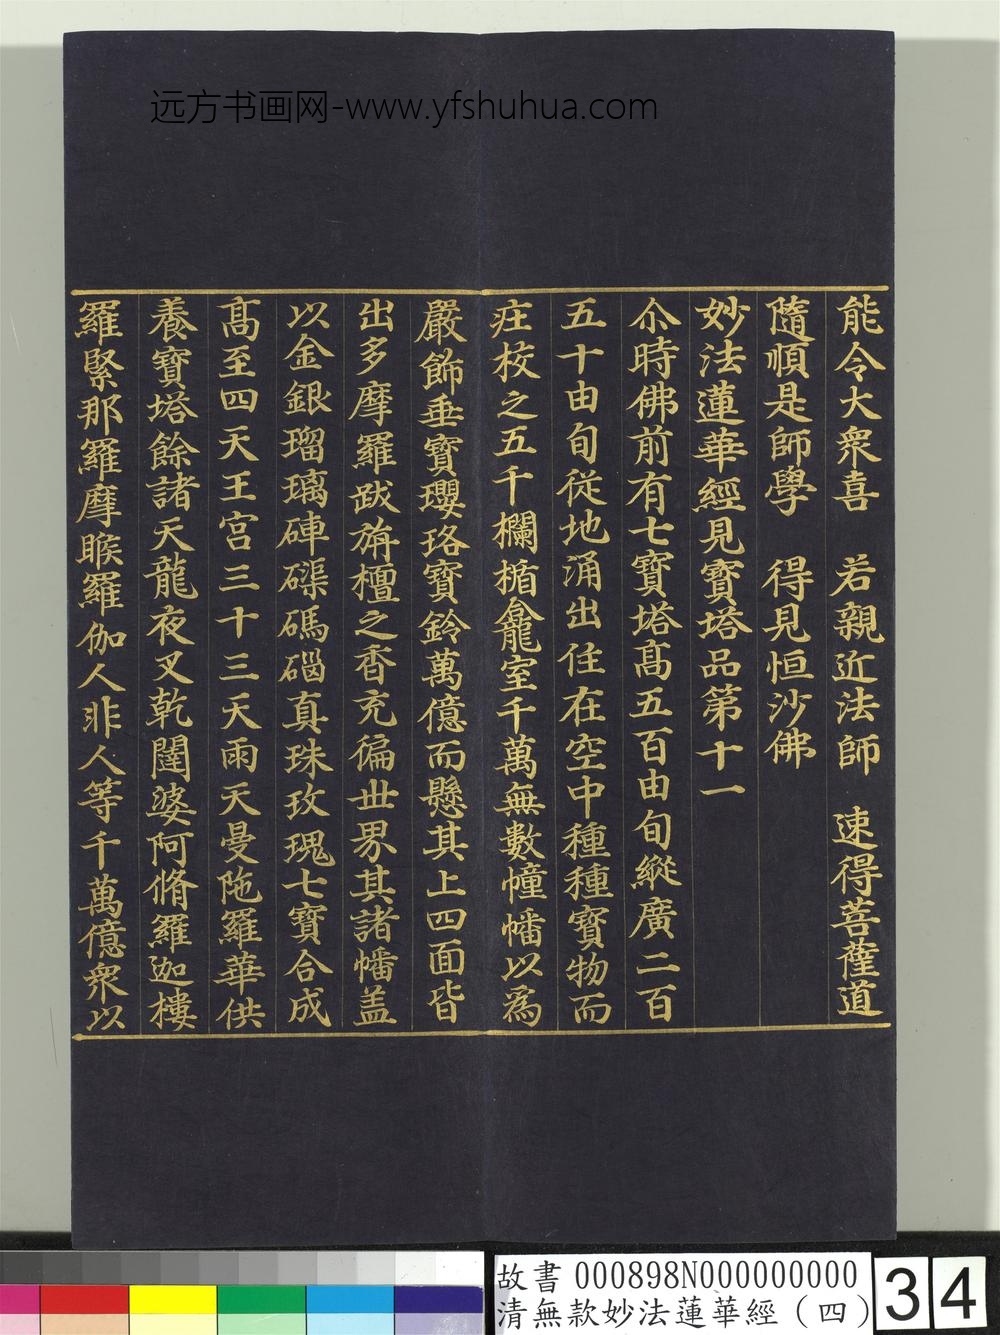 远方书画网-www.yfshuhua.com
能令大衆喜　若親近法師　速得菩薩道
隨順是師學　得見恒沙佛
妙法蓮華經見寶塔品第十一
尒時佛前有七寶塔髙五百由旬縱廣二百
五十由旬從地涌出住在空中種種寶物而
庄校之五千欄楯龕室千萬無數幢幡以爲
嚴飾垂寶瓔珞寶鈴萬億而懸其上四面皆
出多摩羅跋旃檀之香充徧世界其諸幡盖
以金銀瑠璃硨磲碼碯真珠玫瑰七寶合成
髙至四天王宫三十三天雨天曼陁羅華供
養寶塔餘諸天龍夜叉乾闥婆阿脩羅迦樓
羅緊那羅摩睺羅伽人非人等千萬億衆以
故書 000898N000000000
清無款妙法蓮華經（四）
34